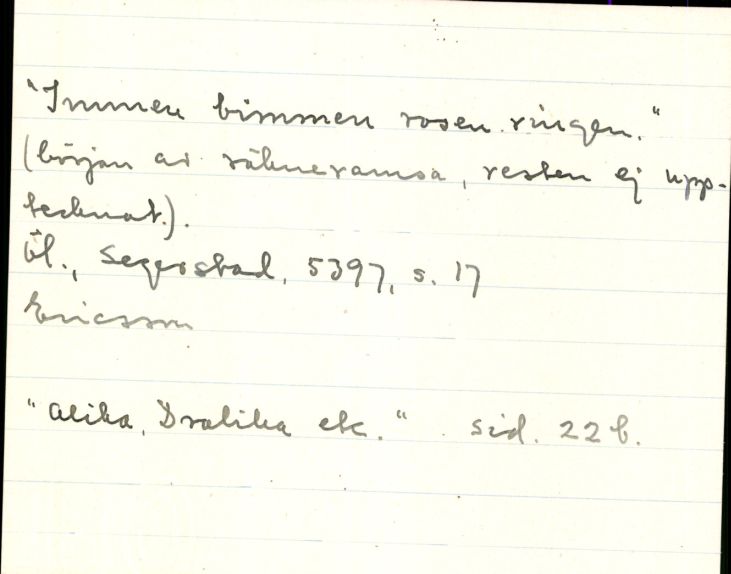 "Immen bimmen rosen ringen."
(början av räkneramsa, resten ej upp-
tecknat.).
Öl., Segerstad, 5397, s. 17
Ericsson
"Alika, Dralika etc." sid. 22 b.